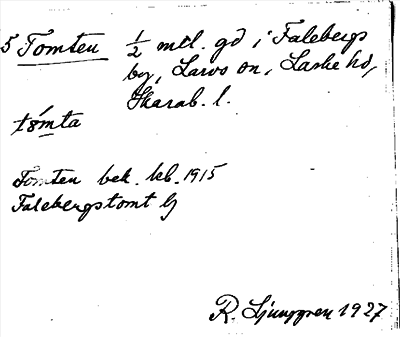 5 Tomten ½ mtl. gd i Falebergs
by, Larvs sn, Laske hd,
Skarab. l.
tómta
Tomten bek. kb. 1915
Falebergstomt lj
R. Ljunggren 1927